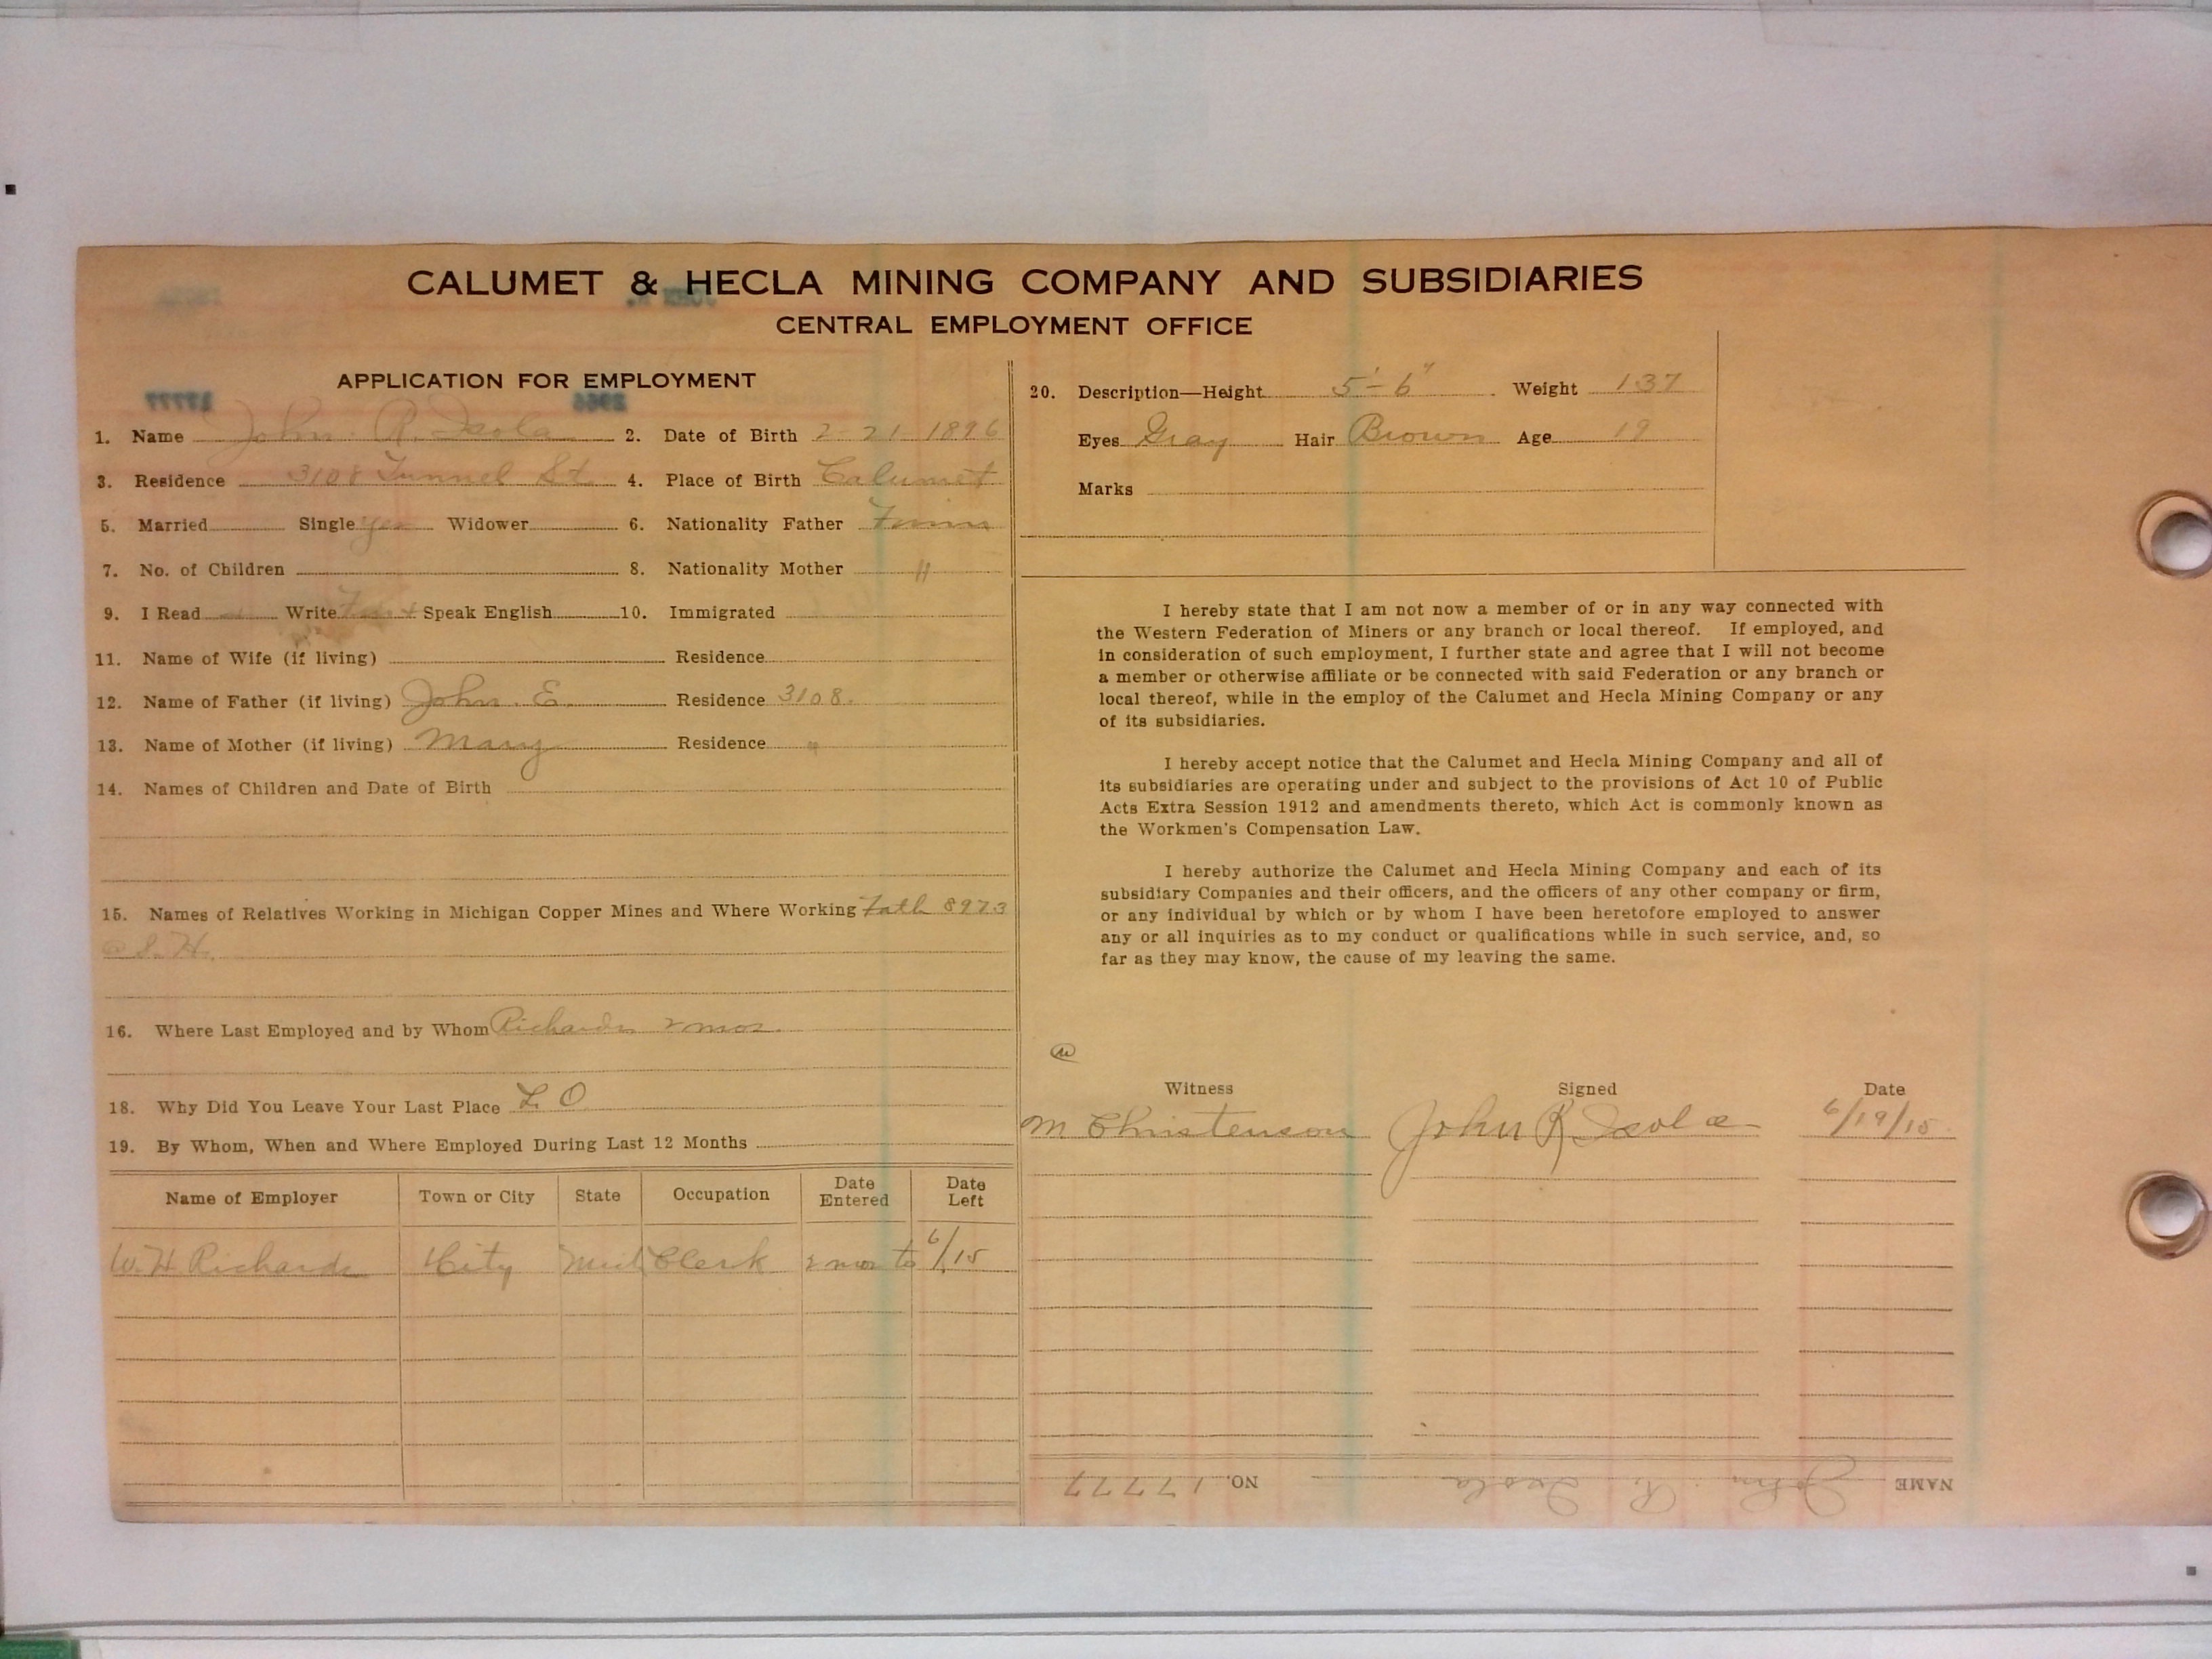 CALUMET & HECLA MINING COMPANY AND SUBSIDIARIES
CENTRAL EMPLOYMENT OFFICE
APPLICATION FOR EMPLOYMENT
17777 2966
1. Name John R. Isola 2. Date of Birth 2-21 1896
3. Residence 3108 Tunnel St. 4. Place of Birth Calumet
5. Married Single yes Widower 6. Nationality Father Finns
7. No. of Children 8. Nationality Mother "
9. I Read Write Speak English 10. Immigrated
11. Name of Wife (if living) Residence
12. Name of Father (if living) John. E. Residence 3108.
13. Name of Mother (if living) Mary Residence "
14. Names of Children and Date of Birth
15. Names of Relatives Working in Michigan Copper Mines and Where Working Fath 8973
@ S. H.
16. Where Last Employed and by Whom Richards 2 mos.
18. Why Did You Leave Your Last Place L O
19. By Whom, When and Where Employed During Last 12 Months
Name of Employer Town or City State Occupation Date Entered Date Left
W. H. Richards City Mich Clerk 2 mos to 6/15
20. Description—Height 5'-6" Weight 137
Eyes Gray Hair Brown Age 19
Marks
I hereby state that I am not now a member of or in any way connected with
the Western Federation of Miners or any branch or local thereof. If employed, and
in consideration of such employment, I further state and agree that I will not become
a member or otherwise affiliate or be connected with said Federation or any branch or
local thereof, while in the employ of the Calumet and Hecla Mining Company or any
of its subsidiaries.
I hereby accept notice that the Calumet and Hecla Mining Company and all of
its subsidiaries are operating under and subject to the provisions of Act 10 of Public
Acts Extra Session 1912 and amendments thereto, which Act is commonly known as
the Workmen's Compensation Law.
I hereby authorize the Calumet and Hecla Mining Company and each of its
subsidiary Companies and their officers, and the officers of any other company or firm,
or any individual by which or by whom I have been heretofore employed to answer
any or all inquiries as to my conduct or qualifications while in such service, and, so
far as they may know, the cause of my leaving the same.
Witness Signed Date
M Christenson John R Isola 6/19/15
NAME John R. Isola NO. 17777